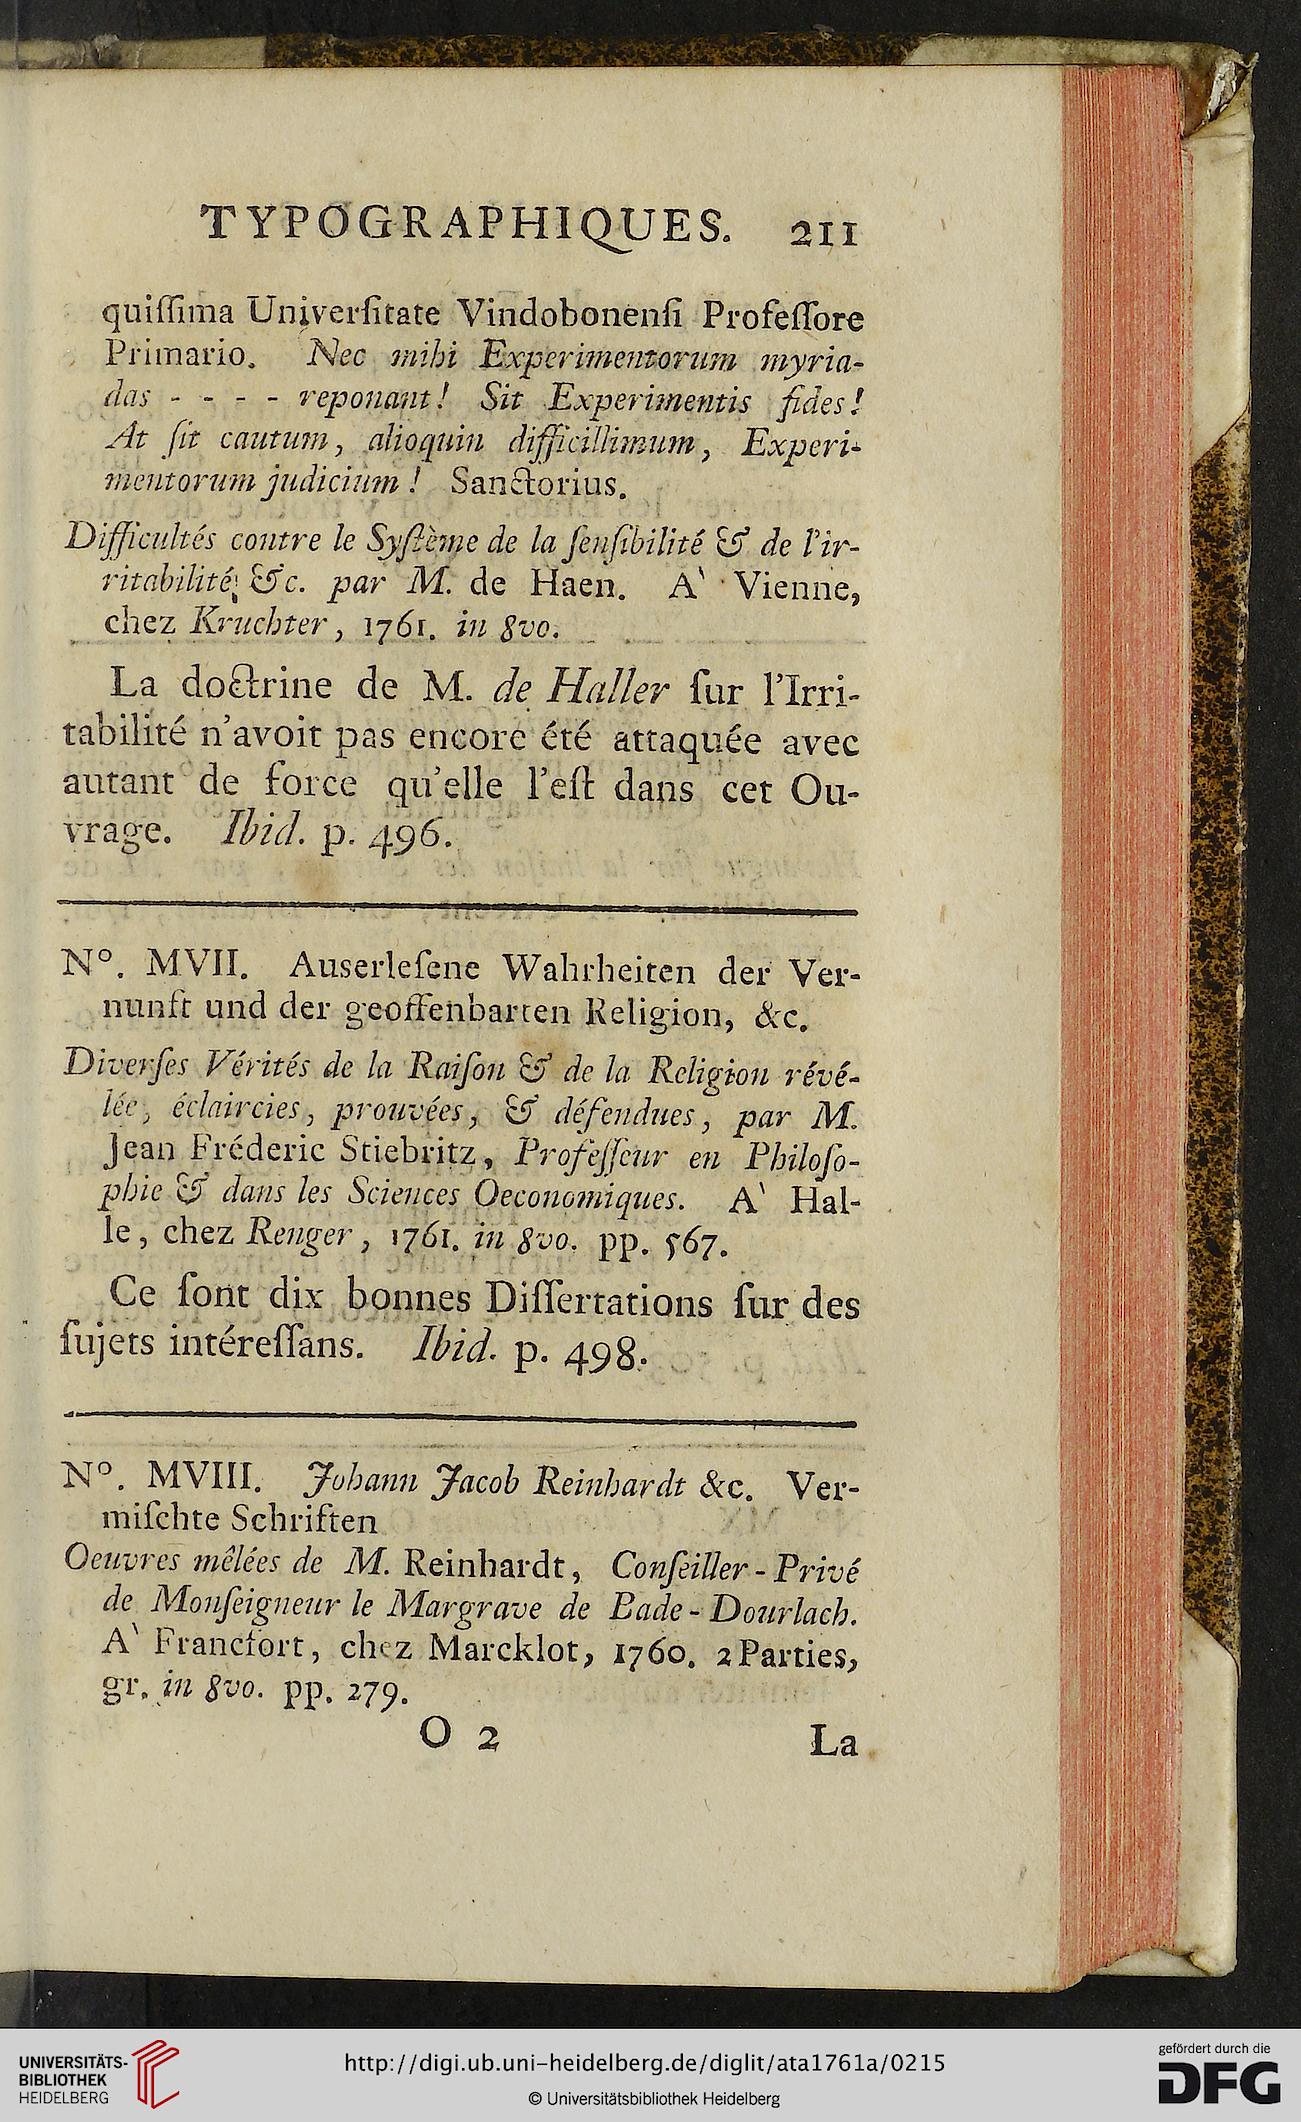 TYPOGRAPHIQUES. 211
quiſſima Univerſitate Vindobonenſi Profeſſore
Primario. Nec mihi Experimentorum myria-
das - - - - reponant! Sit Experimentis fides!
At ſit cautum, alioquin difficillimum, Experi-
mentorum judicium! Sanctorius.
Difficultés contre le Syſtème de la ſenſibilité & de l'ir-
ritabilité, &c. par M. de Haen. A' Vienne,
chez Kruchter, 1761. in 8vo.
La doctrine de M. de Haller ſur l'Irri-
tabilité n'avoit pas encore été attaquée avec
autant de force qu'elle l'eſt dans cet Ou-
vrage. Ibid. p. 496.
N°. MVII. Auserleſene Wahrheiten der Ver-
nunft und der geoffenbarten Religion, &c.
Diverſes Vérités de la Raiſon & de la Religion révé-
lée, éclaircies, prouvées, & défendues, par M.
Jean Fréderic Stiebritz, Profeſſeur en Philoſo-
phie & dans les Sciences Oeconomiques. A' Hal-
le, chez Renger, 1761. in 8vo. pp. 567.
Ce ſont dix bonnes Diſſertations ſur des
ſujets intéreſſans. Ibid. p. 498.
N°. MVIII. Johann Jacob Reinhardt &c. Ver-
miſchte Schriften
Oeuvres mêlées de M. Reinhardt, Conſeiller-Privé
de Monſeigneur le Margrave de Bade-Dourlach.
A' Francfort, chez Marcklot, 1760. 2 Parties,
gr. in 8vo. pp. 279.
O 2 La
UNIVERSITÄTS-
BIBLIOTHEK
HEIDELBERG
http://digi.ub.uni-heidelberg.de/diglit/ata1761a/0215
© Universitätsbibliothek Heidelberg
gefördert durch die
DFG